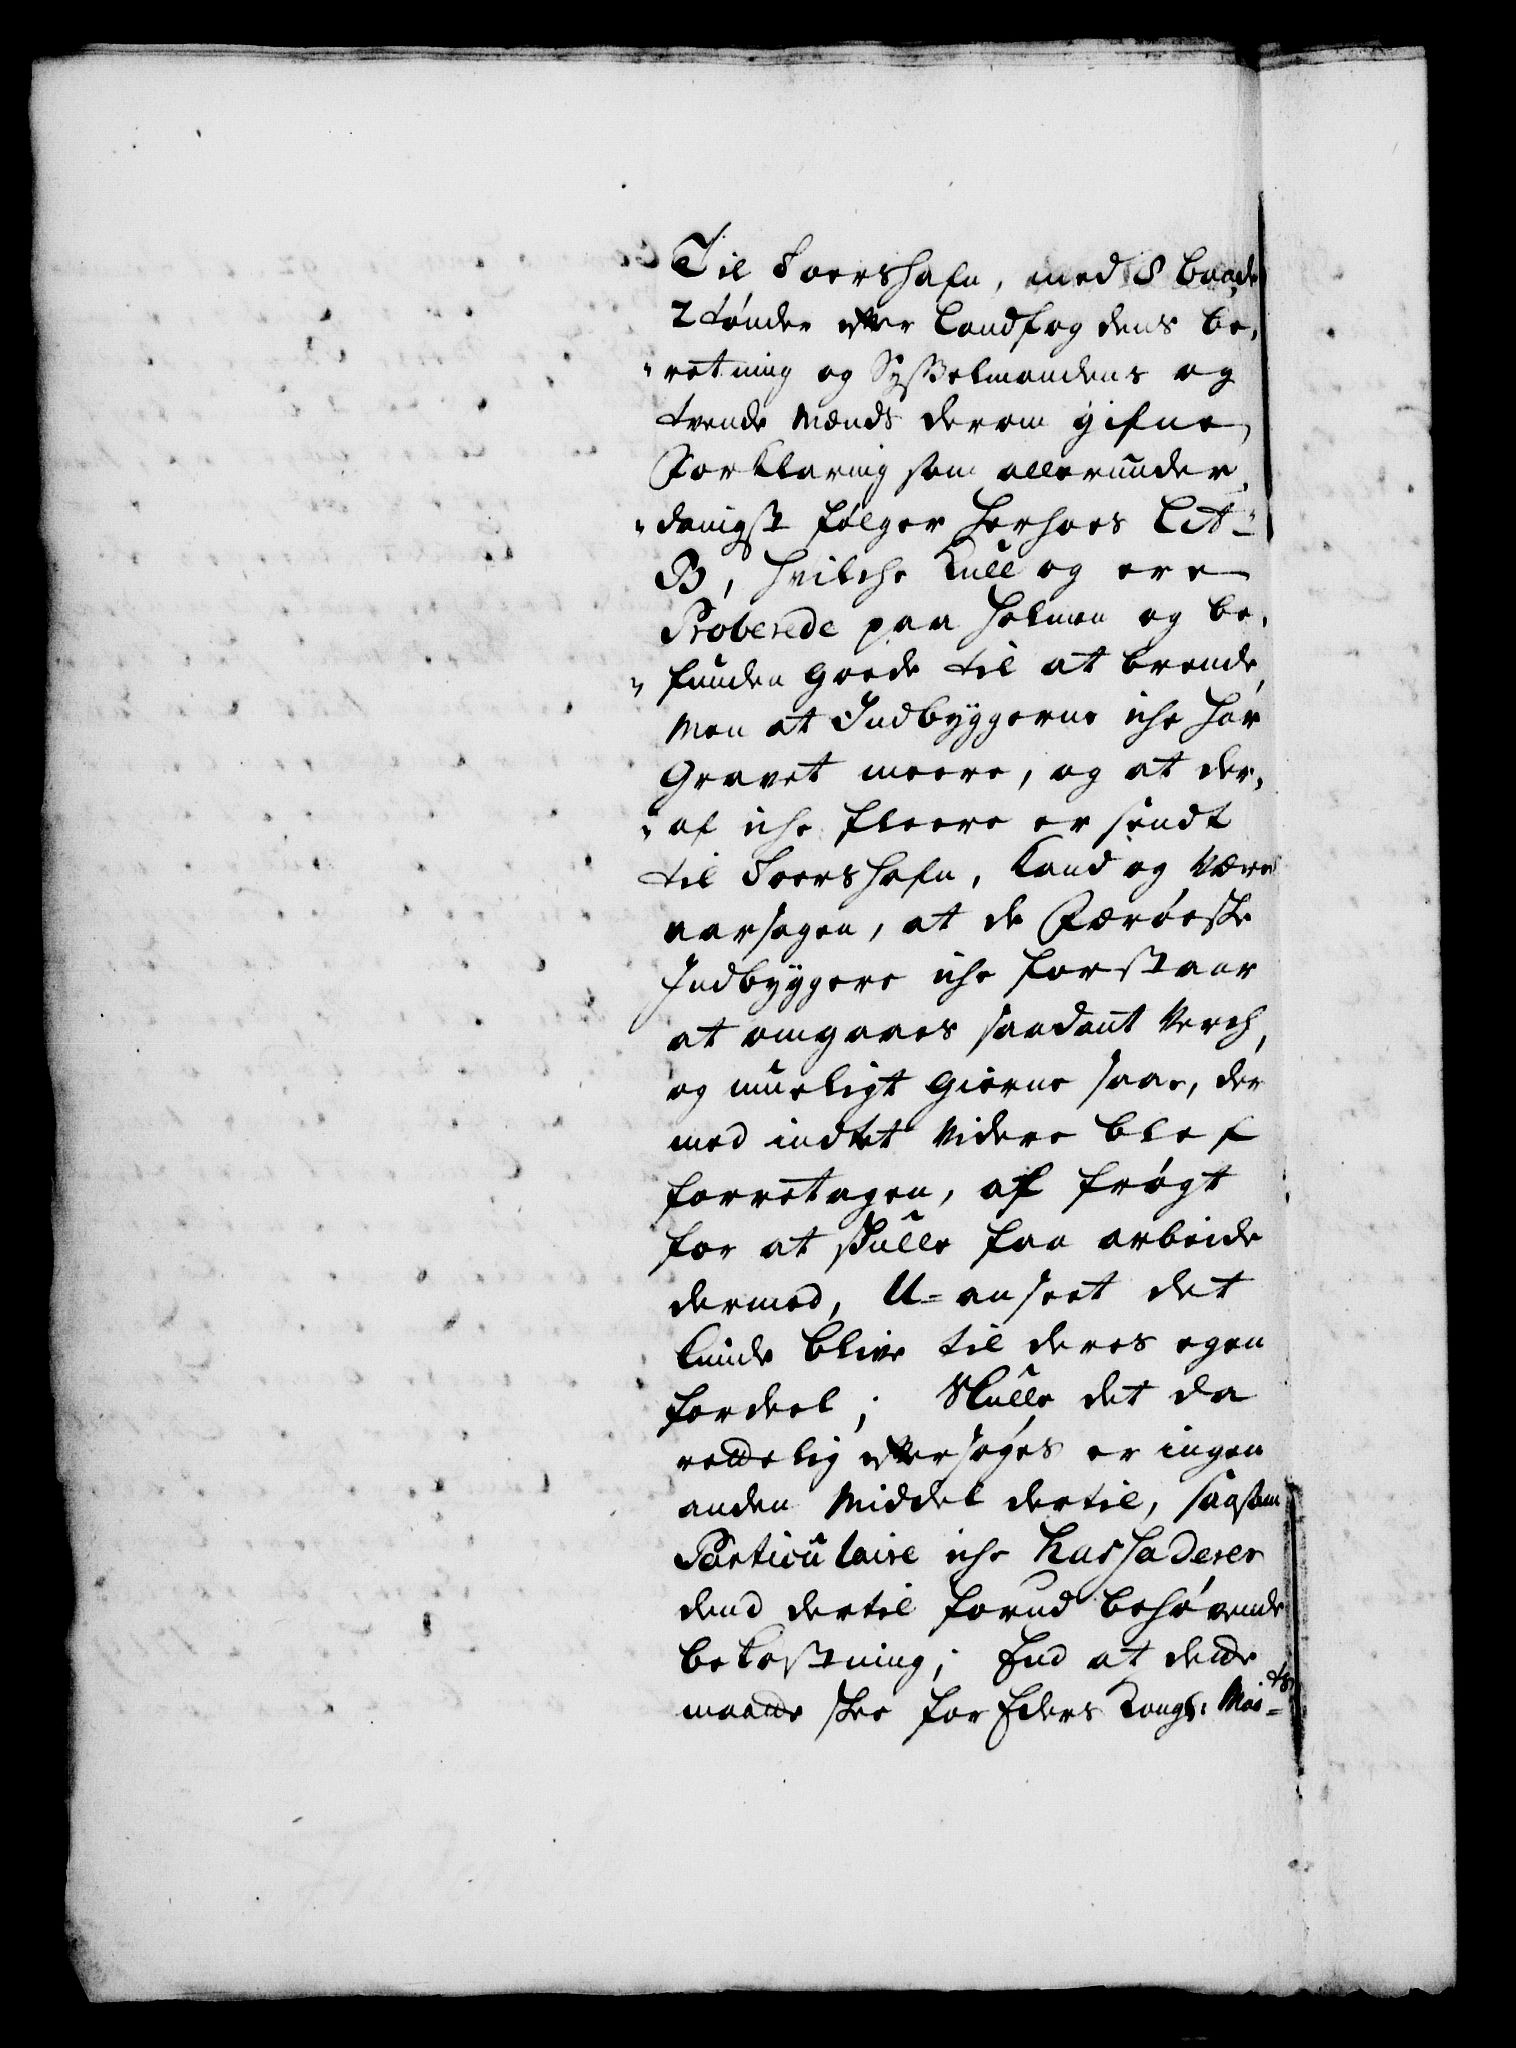 Til Toershafn, med 8 baade
2 tønder efter Landfogdens be-
"retning og Sysselmandens og
tvende Mænds derom gifne
Forklaring som allerunder-
"danigst følger herhoes Lit-
B, hvilche Kull og ere
Proberede paa Holmen og be-
"funden goede til at brende,
Men at Indbyggerne iche har
Gravet meere, og at der-
"af iche fleere er sendt
til Toershafn, kand og være
aarsagen, at de Færøeske
Indbyggere iche forstaar
at omgaaes saadant Verch,
og mueligt gierne saae, der
med indtet videre blef
forretagen, af frøgt
for at skulle faa arbeide
dermed, U-anseet det
kunde blive til deres egen
fordeel; Skulle det da
rettelig eftersøges er ingen
anden Middel dertil, saasom
Particulaire iche hashaderer
dend dertil forud behøvende
bekostning; End at dette
maatte skee for Eders Kongl: Mai-ts